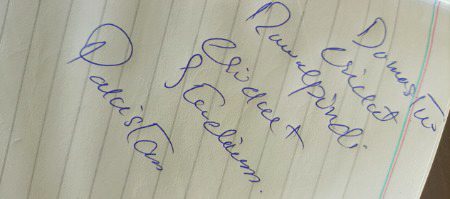 Domastic
cricket
Rawalpindi
cricket
Stadium.
Pakistan